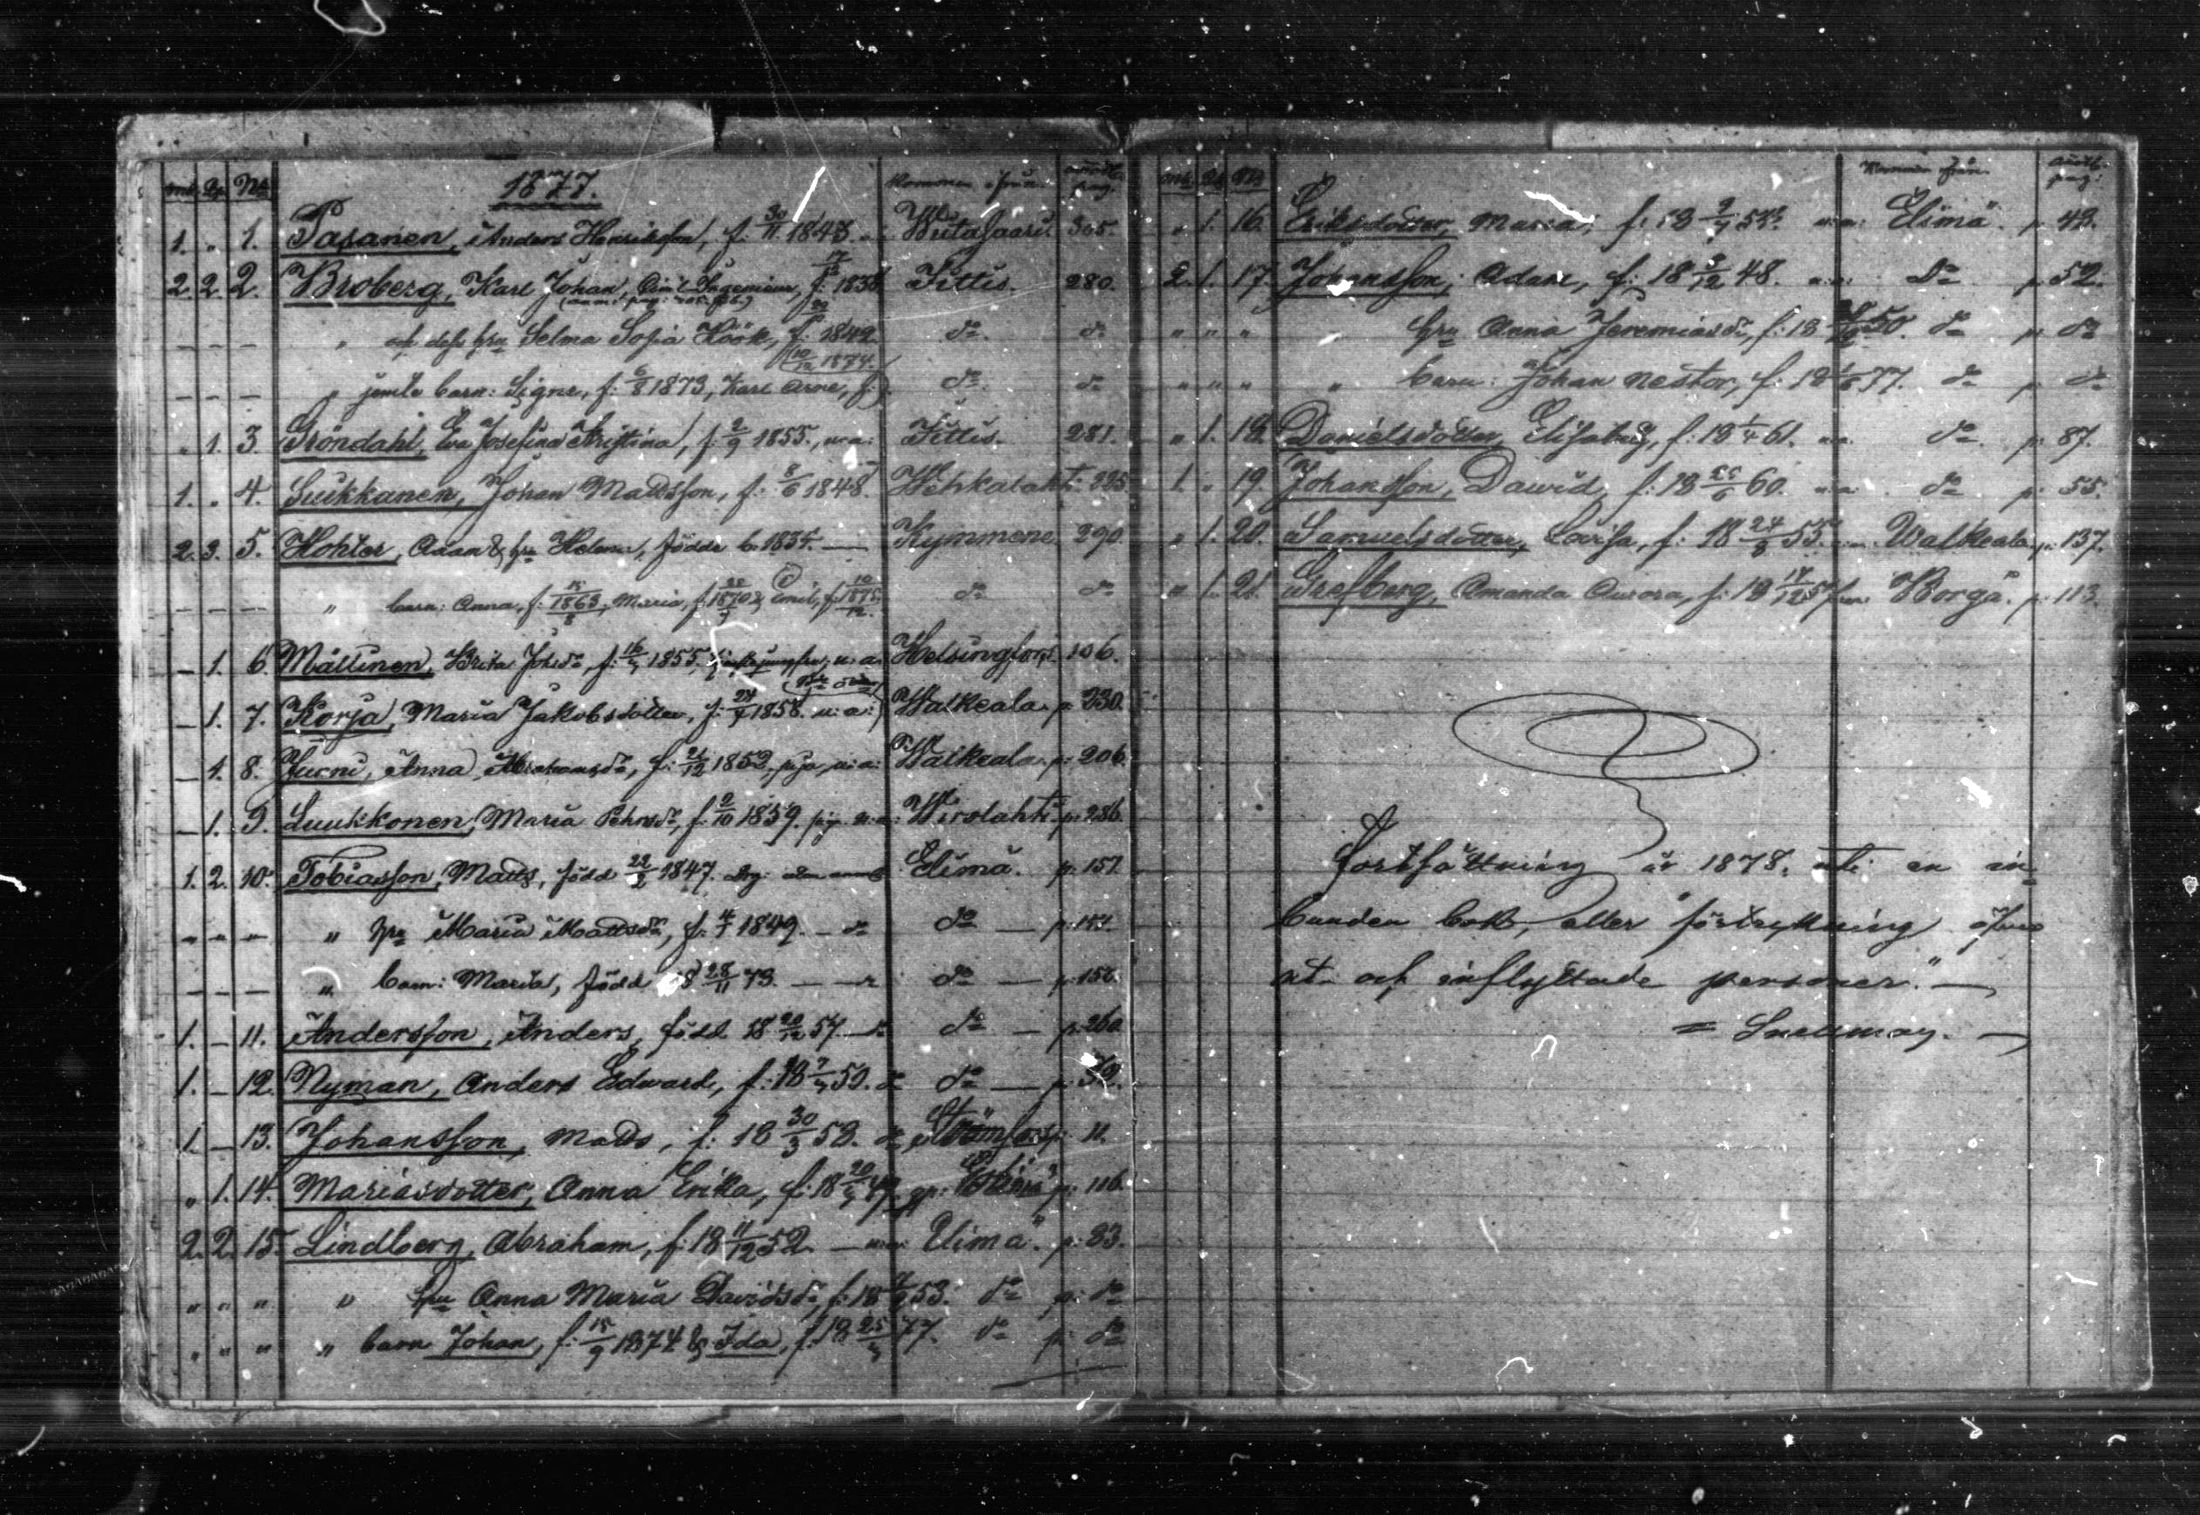 mk. Qp. No. 1877. Kommen ifrån antekn. pag.
1. " 1. Pasanen, Anders Henriksson, f. 30/11 1843. Wiitasaari 305.
2. 2. 2. Broberg, Karl Johan, Civil Ingeniör, f. 17 1838 Tittis. 280.
" och dess hru Selma Sofia Höök, f. 20 1849. do. do
" jemte barn: Signe, f. 6/8 1873, Karl Arne, f. 10/12 1874. do. do
" 1. 3. Gröndahl, Eva Josefina Kristina, f. 2/9 1855., u.a. Tittis. 281.
1. " 4. Suikkanen, Johan Mattsson, f. 8/6 1848. Wehkalaht 225
2. 3. 5. Hohter, Adam & hru Helena, födde b. 1835. — Kymmene 290
" barn: Anna, f. 15/8 1863, Maria, f. 22/7 1870 & Emil, f. 10/12 1875. do do
— 1. 6. Mältinen, Brita Johsdr, f. 16/5 1855, u.a. Helsingfors. 106.
— 1. 7. Korja, Maria Jakobsdotter, f. 24/7 1858. u:a: Walkeala. p. 230.
— 1. 8. Jurni, Anna Abrahamsdr, f. 21/12 1852, piga, u:a: Walkeala. p. 206.
— 1. 9. Luukkonen, Maria Pehrsdr, f. 2/10 1859. pig. u:a: Wirolahti p. 286.
1. 2. 10. Tobiasson, Matts, född 22/2 1847. Elimä. p. 157.
" " " " hru Maria Mattsdr, f. 4/7 1849. — do do — p. 157.
— — — " barn: Maria, född 18 28/11 73. — do — p. 156.
1. — 11. Andersson, Anders, född 18 20/12 57. — do do — p. 260
1. — 12. Nyman, Anders Edward, f. 18 7/7 50. do do — p.
1. — 13. Johansson, Matts, f. 18 30/3 58. do Strömfors p. 11.
" 1. 14. Mariasdotter, Anna Erika, f. 18 20/5 49 Elimä p. 116.
2. 2. 15. Lindberg, Abraham, f. 18 11/12 52. — u:a: Elimä. p. 83.
" " " " hru Anna Maria Davidsdr, f. 18 53. do p. do
" " " " barn Johan, f. 15/9 1874 & Ida, f. 18 25/5 77. do p. do
mk. Qp. No. Kommen ifrån antekn. pag:
" 1. 16. Eriksdotter, Maria, f. 18 9/7 55. u:a: Elimä. p. 48.
2. 1. 17. Johansson, Adam, f. 18 2/12 48. u:a: do p. 52.
" " " " hru Anna Jeremiasdr, f. 18 50. do p. do
" " " " barn: Johan Nestor, f. 18 1/6 77. do p. do
" 1. 18. Danielsdotter, Elisabeth, f. 18 1/4 61. u:a: do p. 87.
1 " 19. Johansson, David, f. 18 25/6 60. u:a: do p. 55.
" 1. 20. Samuelsdotter, Lovisa, f. 18 24/8 55. Walkeala p. 137.
" 1. 21. Grefberg, Amanda Aurora, f. 18 17/12 57 Borgå. p. 113.
Fortsättning år 1878. uti en in-
bunden bok, eller "förteckning öfver
ut- och inflyttade personer". —
= Snellman. —